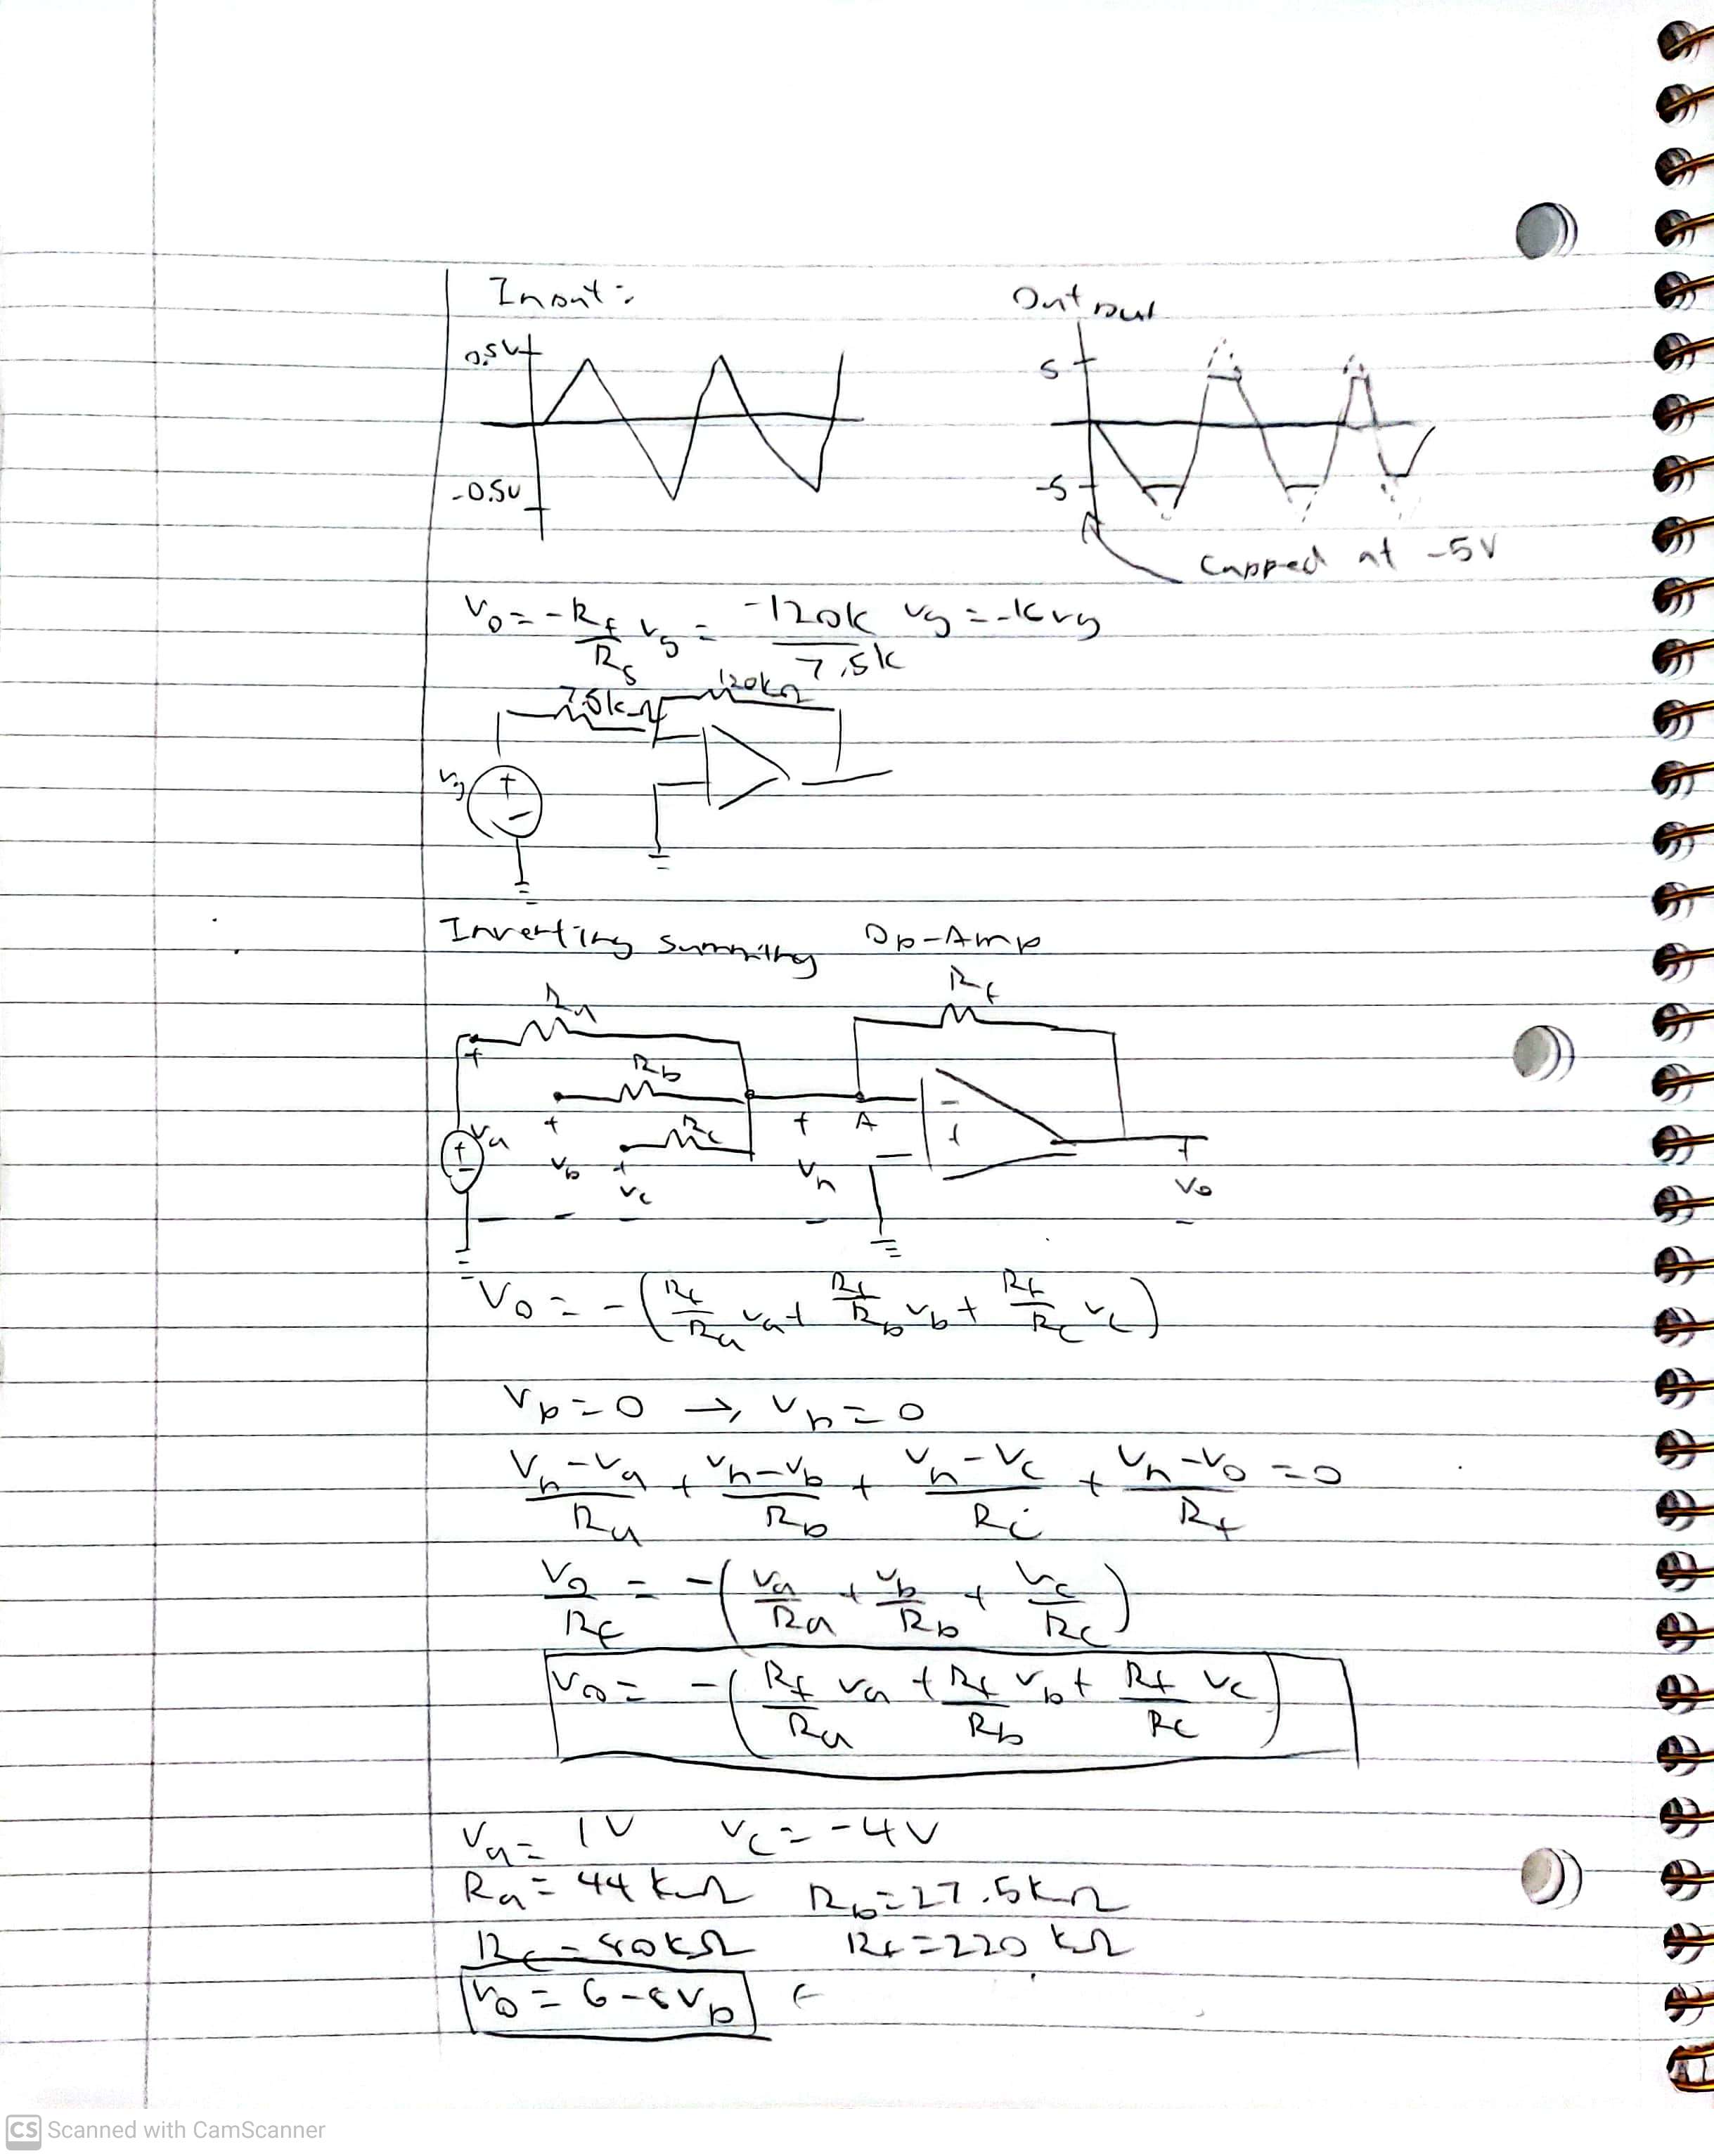 Input: Output
0.5V 5
-0.5V -5
Capped at -5V
V₀ = -R_f/R_s v_g = -120k/7.5k v_g = -16 v_g
7.5kΩ 120kΩ
v_g + -
Inverting Summing Op-Amp
R_a R_f
+ R_b
+ R_c + A -
+ - v_a v_b + v_c v_n + + v₀
- - - - -
V₀ = -(R_f/R_a v_a + R_f/R_b v_b + R_f/R_c v_c)
V_p = 0 → V_n = 0
(V_n - V_a)/R_a + (V_n - V_b)/R_b + (V_n - V_c)/R_c + (V_n - V_0)/R_f = 0
V_0/R_f = -(V_a/R_a + V_b/R_b + V_c/R_c)
V_0 = -(R_f/R_a V_a + R_f/R_b V_b + R_f/R_c V_c)
V_a = 1V V_c = -4V
R_a = 44 kΩ R_b = 27.5kΩ
R_c = 80kΩ R_f = 220 kΩ
V_0 = 6-8V_b ←
CS Scanned with CamScanner